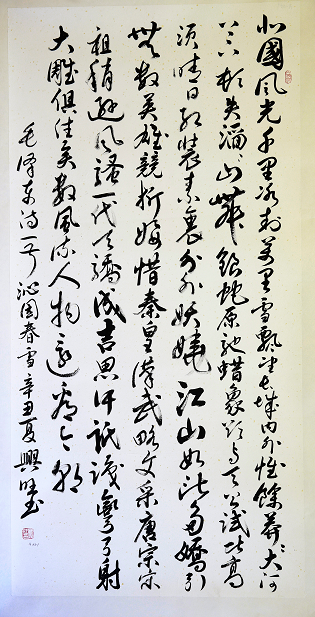 北國風光千里冰封万里雪飄望长城内外惟餘莽〻大河
上下頓失滔〻山舞銀蛇原驰蜡象欲与天公試比高
须晴日红装素裹分外妖娆江山如此多嬌引
無数英雄競折腰惜秦皇漢武略文采唐宗宋
祖稍遜风骚一代天驕成吉思汗祇識彎弓射
大雕俱往矣数風流人物還看今朝
毛泽东诗一首沁园春雪辛丑夏興